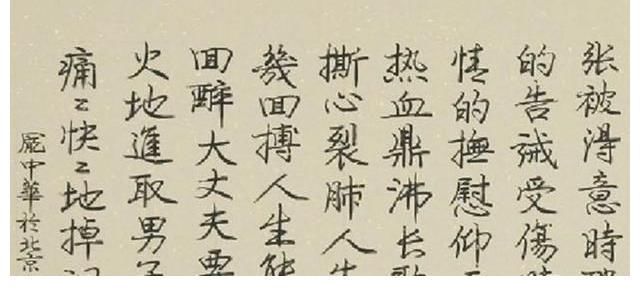 张被得意時
的告誡受傷
情的撫慰仰
热血鼎沸长
撕心裂肺人
幾回搏人生能
回醉大丈夫要
火地進取男
痛々快々地掉
龐中華於北京